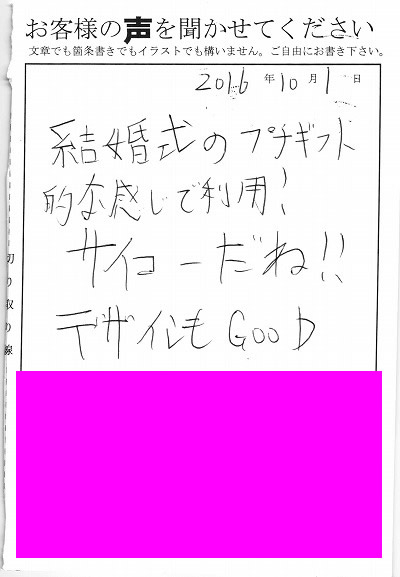 お客様の声を聞かせてください
文章でも箇条書きでもイラストでも構いません。ご自由にお書き下さい。
2016年10月1日
結婚式のプチギフト
的な感じで利用!
サイコーだね!!
デザイルもGOOD
切り取り線